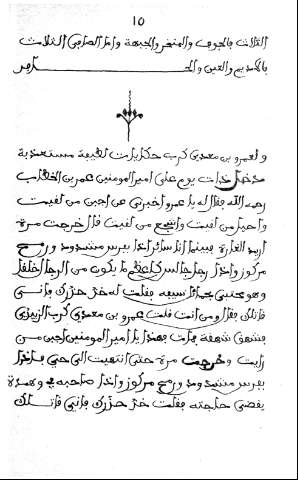 15
الثلاث بالجوف والمنخر والجبهة واما الصافي الثلاث
بالاديم والعين والحـــــافر
ولعمرو بن معدي كرب حكايات لطيفة مستعذبة
فدخل ذات يوم على امير المومنين عمر بن الخطاب
رحمه الله فقال له يا عمرو اخبرني عن اجبن من لقيت
واحيل من لقيت واشجع من لقيت قال خرجت مرة
اريد الغارة فبينما انا سائر اذا بفرس مشدود ورمح
مركوز واذا رجل جالس كاعظم ما يكون من الرجال خلقا
وهو محتبي بحمائل سيفه فقلت له خذ حذرك فاني
قاتلك فقال ومن انت قلت عمرو بن معدي كرب الزبيدي
فشهق شهقة فمات فهذا يا امير المومنين اجبن من
رايت وخرجت مرة حتى انتهيت الى حي فاذا
بفرس مشدود ورمح مركوز واذا صاحبه في وهدة
يقضي حاجته فقلت خذ حذرك فاني قاتلك